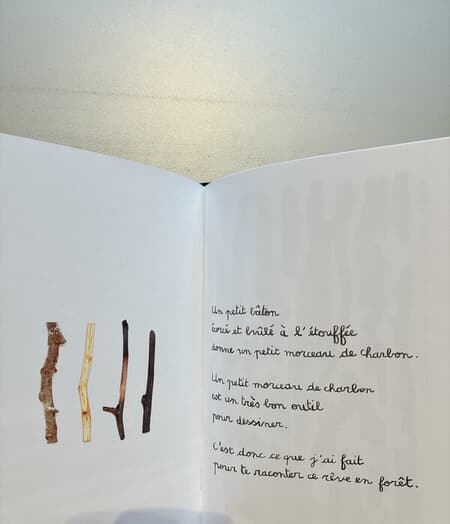 Un petit bâton
écorcé et brûlé à l'étouffée
donne un petit morceau de charbon.
Un petit morceau de charbon
est un très bon outil
pour dessiner.
C'est donc ce que j'ai fait
pour te raconter ce rêve en forêt.